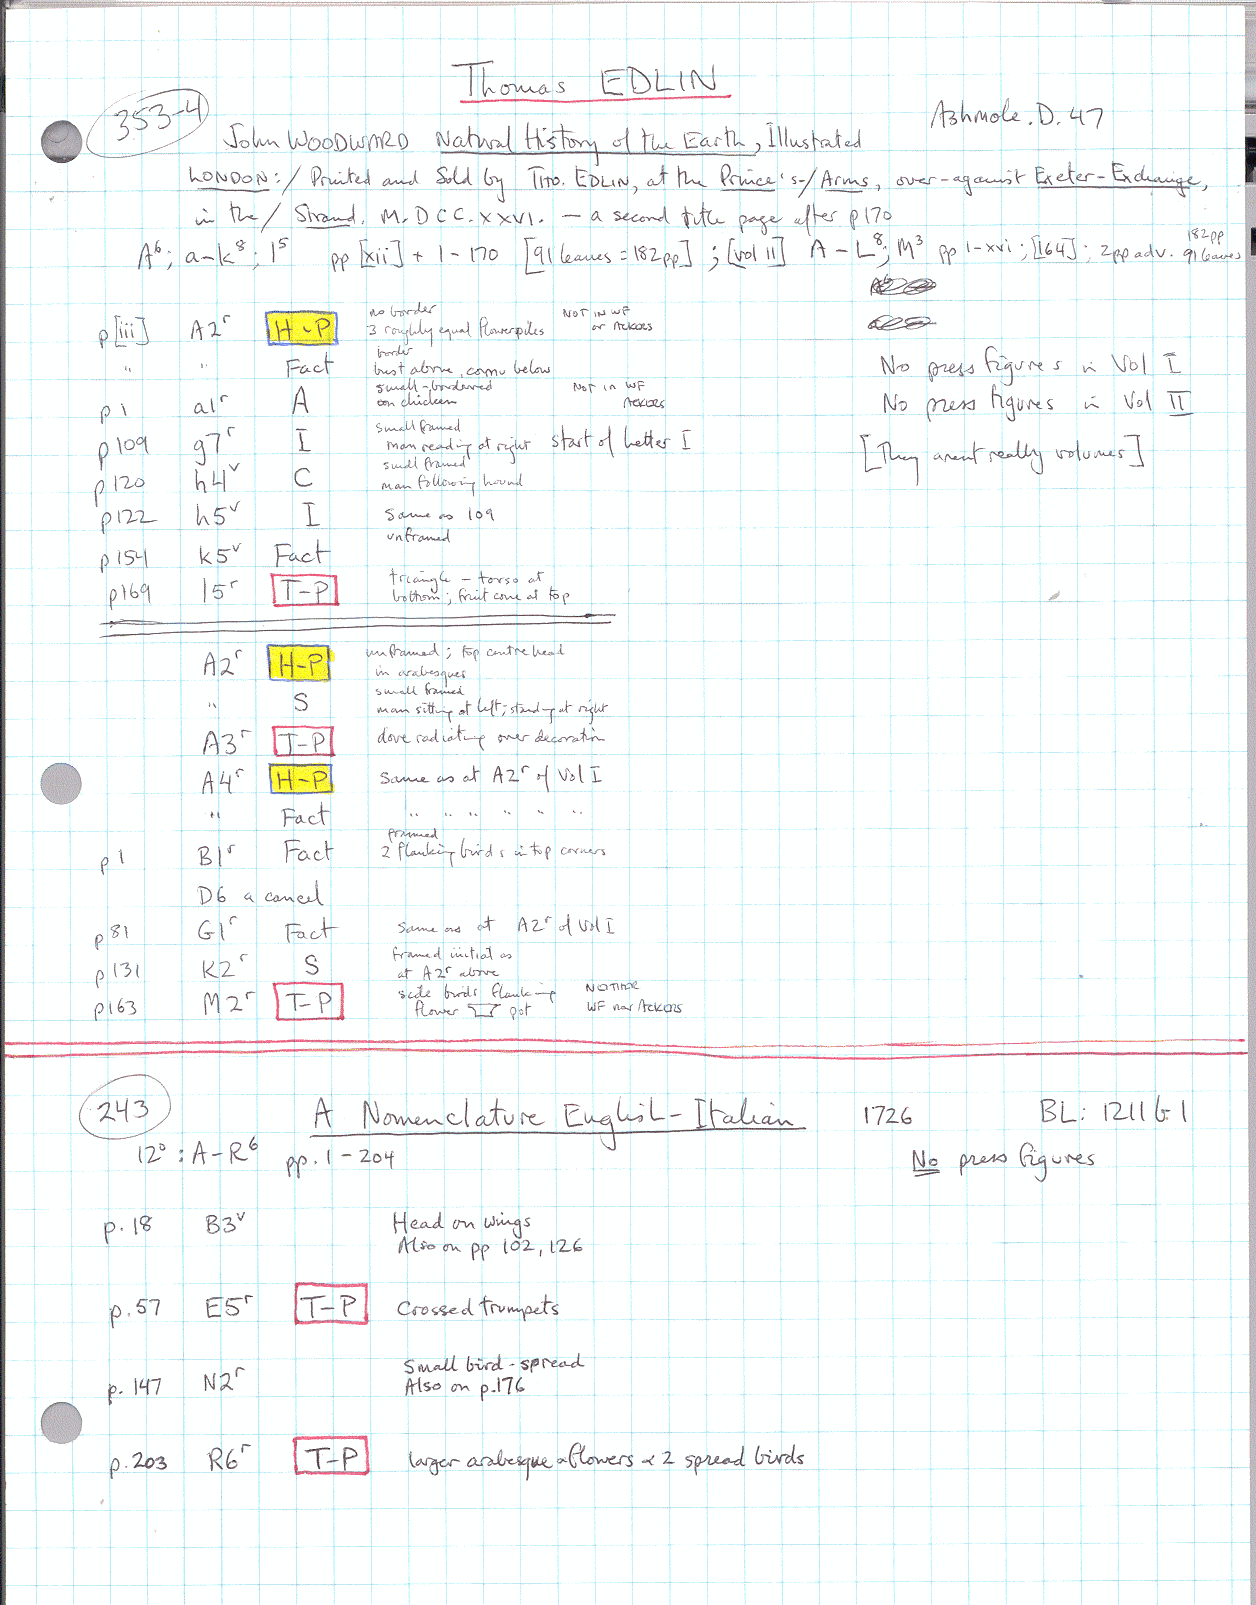 Thomas EDLIN
353-4
Ashmole. D. 47
John WOODWARD Natural History of the Earth, Illustrated
LONDON:/ Printed and Sold by THO. EDLIN, at the Prince's-/Arms, over-against Exeter-Exchange,
in the/ Strand. M.DCC.XXVI. — a second title page after p170
A⁶; a-k⁸; l⁵ pp [xii] + 1-170 [91 leaves = 182pp]; [vol II] A-L⁸; M³ pp i-xvi; [164]; 2pp adv. 182pp 91 leaves
p[iii] A2ʳ H-P no border 3 roughly equal flowerpiles NOT IN WF or Ackers
" " Fact border bust above, cornu below
p 1 a1ʳ A small-bordered chicken NOT IN WF Ackers
p109 g7ʳ I small framed man reading at right start of letter I
p120 h4ᵛ C small framed man following hound
p122 h5ᵛ I same as 109
p154 k5ᵛ Fact unframed
p169 l5ʳ T-P triangle - torso at bottom; fruit cone at top
No press figures in Vol I
No press figures in Vol II
[They arent really volumes]
A2ʳ H-P unframed; top centre head in arabesques
" S small framed man sitting at left; standing at right
A3ʳ T-P dove radiating over decoration
A4ʳ H-P Same as at A2ʳ of Vol I
" Fact " " " " " "
p1 B1ʳ Fact framed 2 flanking birds in top corners
D6 a cancel
p81 G1ʳ Fact same as at A2ʳ of Vol I
p131 K2ʳ S framed initial as at A2ʳ above
p163 M2ʳ T-P side birds flanking flower pot WF nor Ackers
243
A Nomenclature English-Italian 1726 BL: 1211 b 1
12⁰: A-R⁶ pp. 1-204 No press figures
p. 18 B3ᵛ Head on wings
Also on pp 102, 126
p. 57 E5ʳ T-P Crossed trumpets
p. 147 N2ʳ Small bird - spread
Also on p.176
p. 203 R6ʳ T-P larger arabesque flowers 2 spread birds